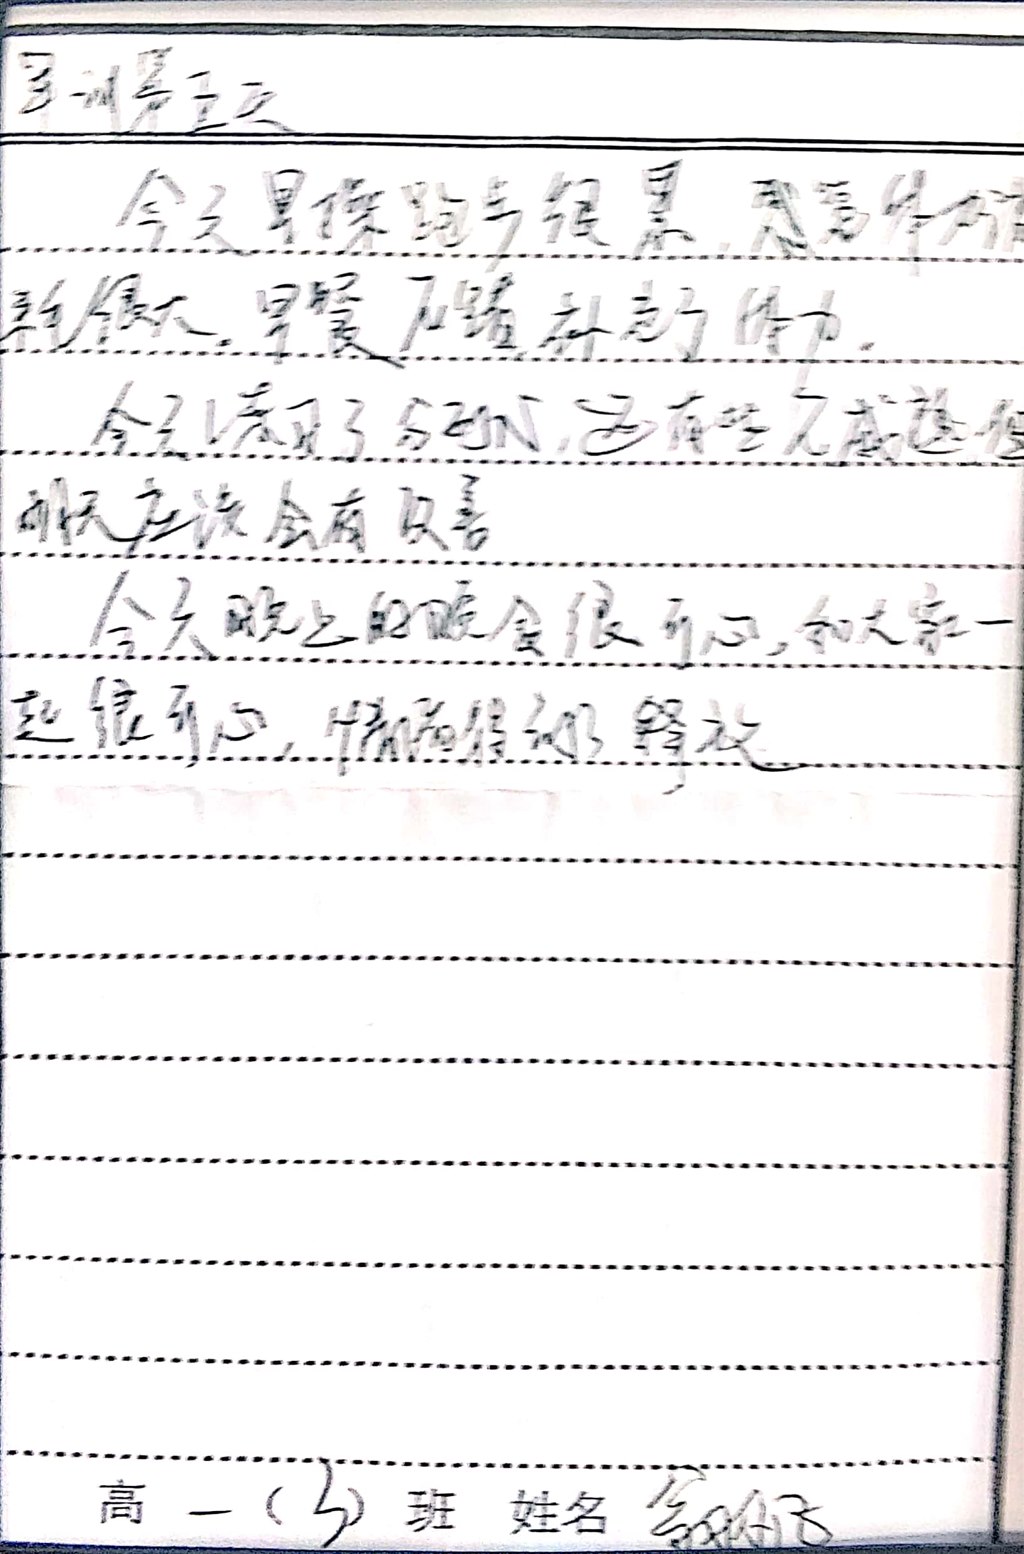 军训第五天
今天早操跑步很累,感觉体力消
耗很大。早餐后踏补充了体力。
今天练习了方队,还有些不成
明天应该会有改善
今天晚上的晚会很开心,和大家一
起很开心,情绪得到释放
高一( )班 姓名